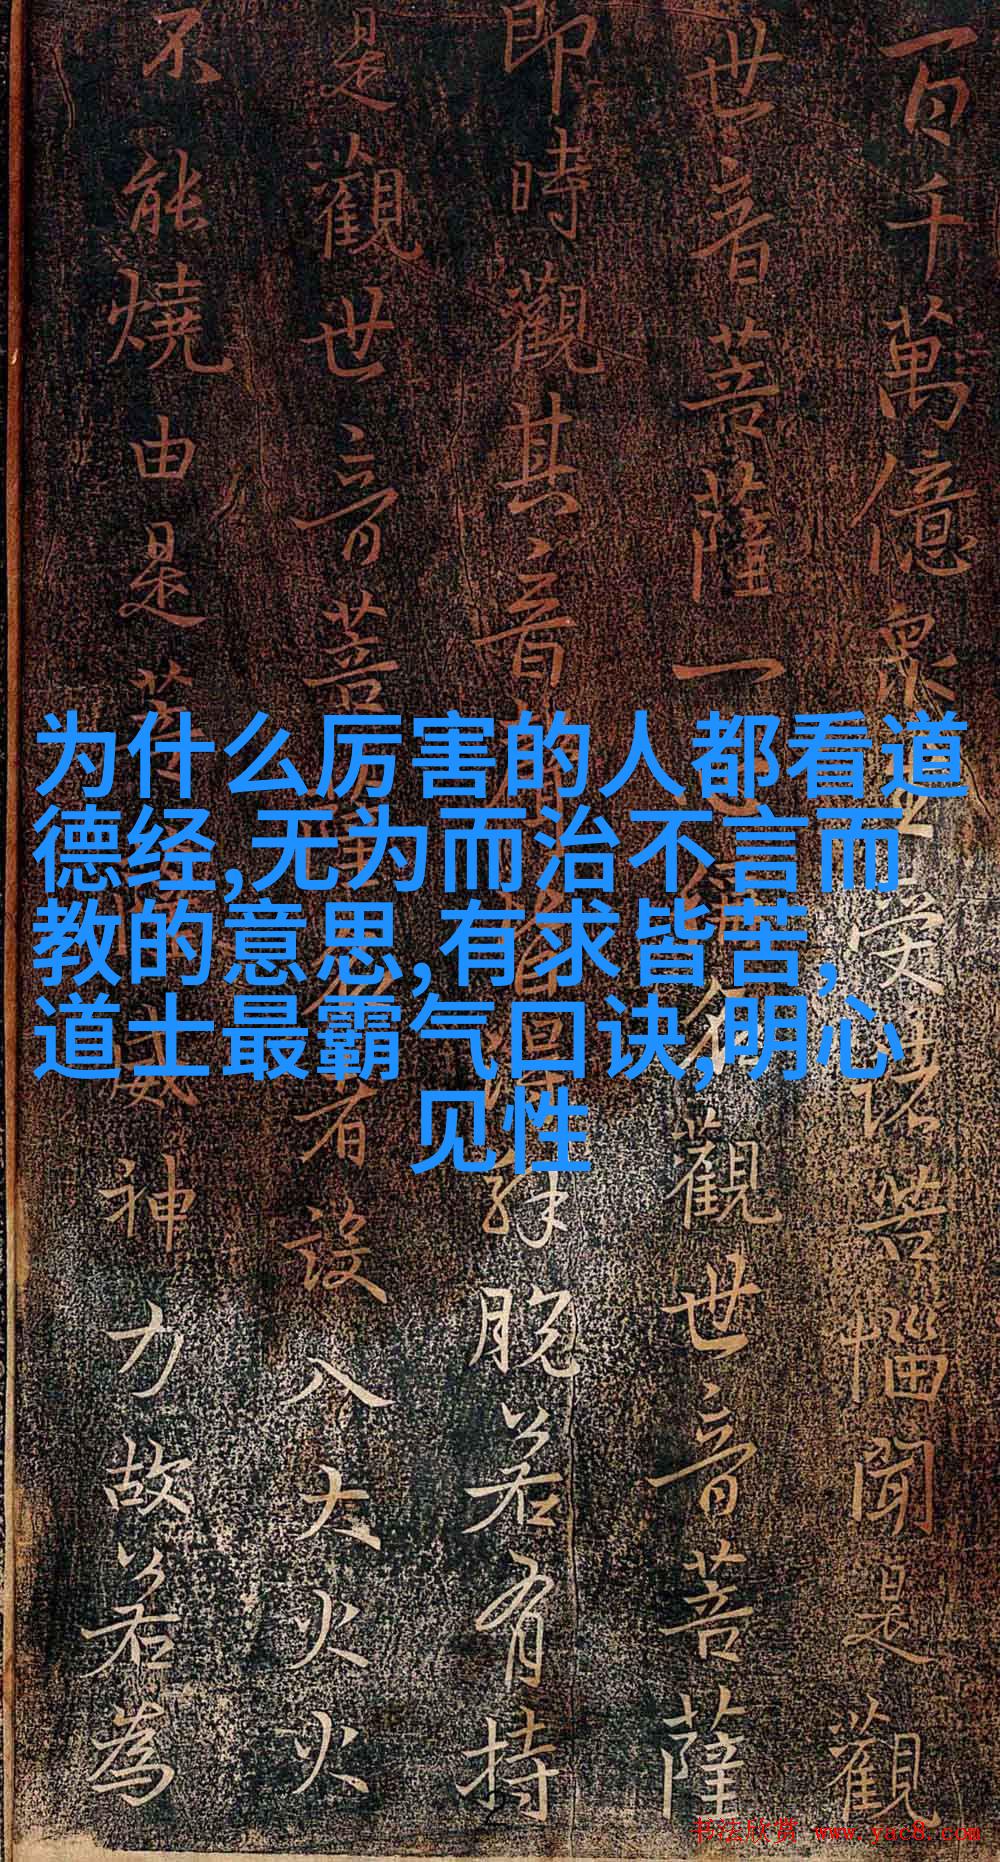 百千萬億眾生受諸苦惱聞是觀
世音菩薩一名觀世音菩薩
即時觀其音皆得解脫若有持
是觀世音菩薩名者設入大火火
不能燒由是菩薩威神力故若為
为什么厉害的人都看道
德经,无为而治不言而
教的意思,有求皆苦,
道士最霸气口诀,明心
见性
书法欣赏 www.yac8.com